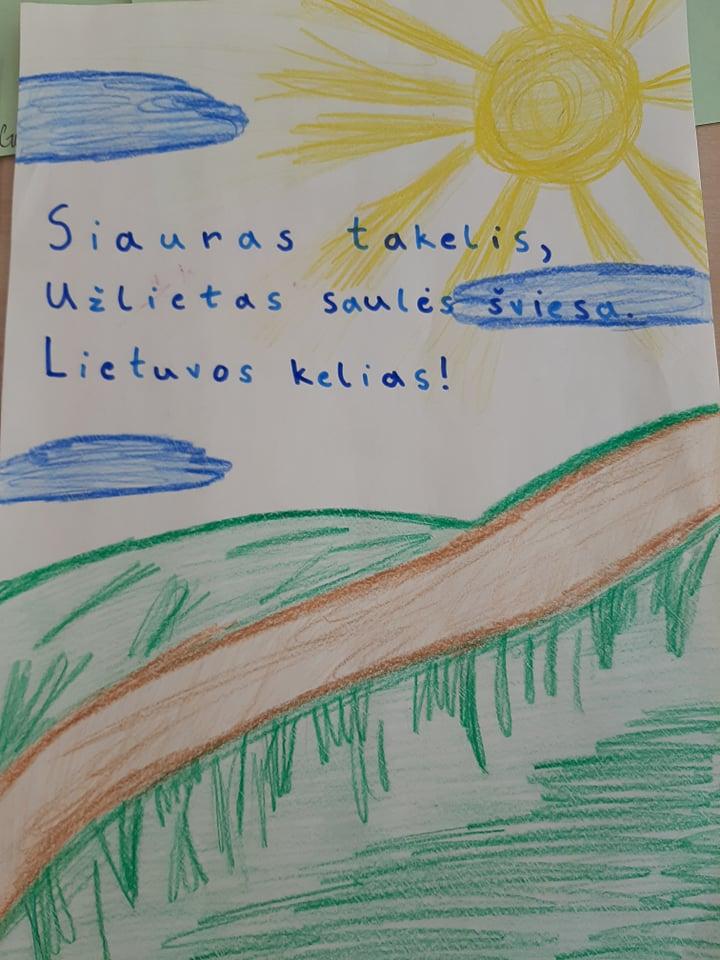 Siauras takelis,
Užlietas saulės šviesa.
Lietuvos kelias!